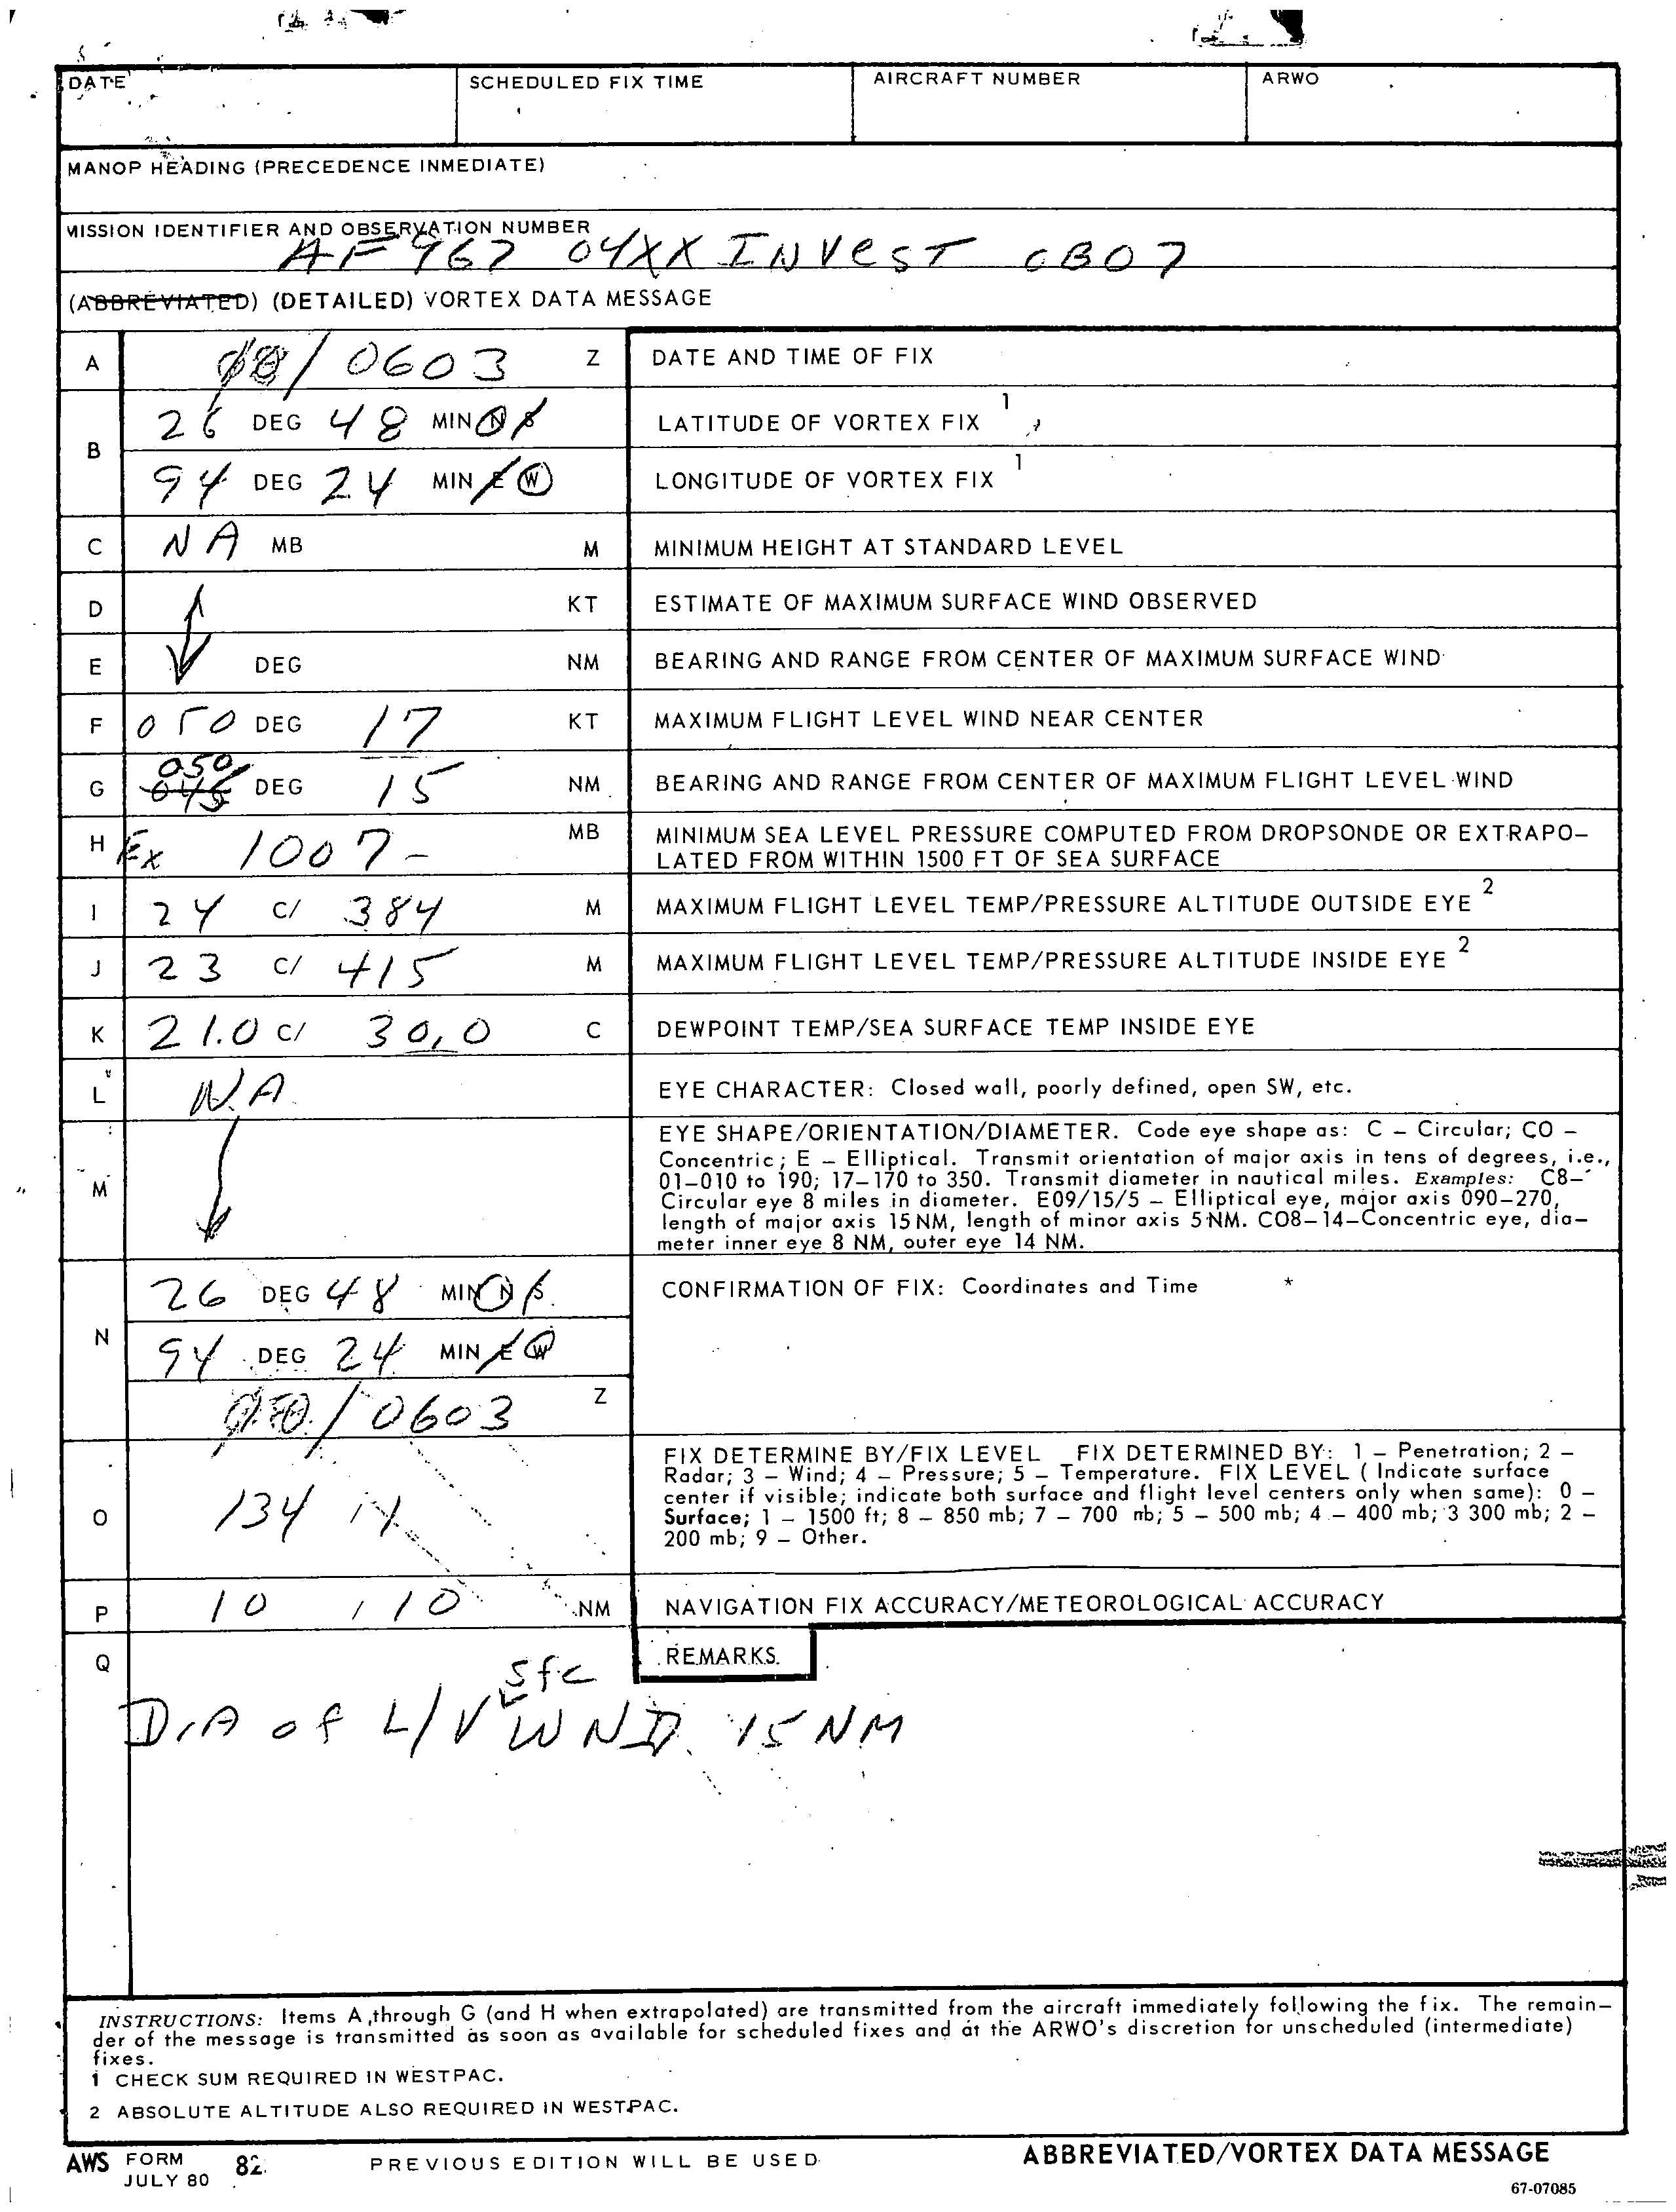 DATE SCHEDULED FIX TIME AIRCRAFT NUMBER ARWO
MANOP HEADING (PRECEDENCE INMEDIATE)
MISSION IDENTIFIER AND OBSERVATION NUMBER
AF967 04XX INVEST OB07
(ABBREVIATED) (DETAILED) VORTEX DATA MESSAGE
A / 0603 Z DATE AND TIME OF FIX
B 26 DEG 48 MIN N S LATITUDE OF VORTEX FIX 1
94 DEG 24 MIN E W LONGITUDE OF VORTEX FIX 1
C NA MB M MINIMUM HEIGHT AT STANDARD LEVEL
D KT ESTIMATE OF MAXIMUM SURFACE WIND OBSERVED
E DEG NM BEARING AND RANGE FROM CENTER OF MAXIMUM SURFACE WIND
F 050 DEG 17 KT MAXIMUM FLIGHT LEVEL WIND NEAR CENTER
050
G 045 DEG 15 NM BEARING AND RANGE FROM CENTER OF MAXIMUM FLIGHT LEVEL WIND
H Ex 1007- MB MINIMUM SEA LEVEL PRESSURE COMPUTED FROM DROPSONDE OR EXTRAPO-
LATED FROM WITHIN 1500 FT OF SEA SURFACE
I 24 C/ 384 M MAXIMUM FLIGHT LEVEL TEMP/PRESSURE ALTITUDE OUTSIDE EYE 2
J 23 C/ 415 M MAXIMUM FLIGHT LEVEL TEMP/PRESSURE ALTITUDE INSIDE EYE 2
K 21.0 C/ 30.0 C DEWPOINT TEMP/SEA SURFACE TEMP INSIDE EYE
L NA EYE CHARACTER: Closed wall, poorly defined, open SW, etc.
M EYE SHAPE/ORIENTATION/DIAMETER. Code eye shape as: C – Circular; CO –
Concentric; E – Elliptical. Transmit orientation of major axis in tens of degrees, i.e.,
01–010 to 190; 17–170 to 350. Transmit diameter in nautical miles. Examples: C8–
Circular eye 8 miles in diameter. E09/15/5 – Elliptical eye, major axis 090–270,
length of major axis 15 NM, length of minor axis 5 NM. CO8–14–Concentric eye, dia–
meter inner eye 8 NM, outer eye 14 NM.
N 26 DEG 48 MIN N S CONFIRMATION OF FIX: Coordinates and Time *
94 DEG 24 MIN E W
/ 0603 Z
O 134 FIX DETERMINE BY/FIX LEVEL FIX DETERMINED BY: 1 – Penetration; 2 –
Radar; 3 – Wind; 4 – Pressure; 5 – Temperature. FIX LEVEL (Indicate surface
center if visible; indicate both surface and flight level centers only when same): 0 –
Surface; 1 – 1500 ft; 8 – 850 mb; 7 – 700 mb; 5 – 500 mb; 4 – 400 mb; 3 300 mb; 2 –
200 mb; 9 – Other.
P 10 / 10 NM NAVIGATION FIX ACCURACY/METEOROLOGICAL ACCURACY
Q REMARKS.
Sfc
DIA of L/V WND 15 NM
INSTRUCTIONS: Items A through G (and H when extrapolated) are transmitted from the aircraft immediately following the fix. The remain–
der of the message is transmitted as soon as available for scheduled fixes and at the ARWO's discretion for unscheduled (intermediate)
fixes.
1 CHECK SUM REQUIRED IN WESTPAC.
2 ABSOLUTE ALTITUDE ALSO REQUIRED IN WESTPAC.
AWS FORM 82 PREVIOUS EDITION WILL BE USED ABBREVIATED/VORTEX DATA MESSAGE
JULY 80
67-07085